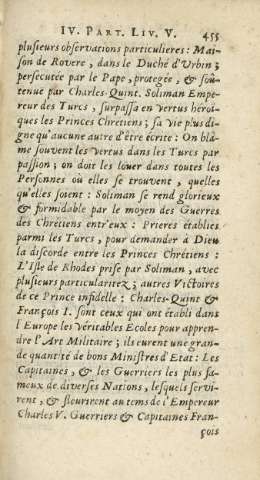 IV. PART. LIV. V. 455
plusieurs observations particulieres : Mai-
son de Rovere, dans le Duché d'Urbin ;
persecutée par le Pape, protegée, & soû-
tenue par Charles-Quint. Soliman Empe-
reur des Turcs, surpassa en vertus heroï-
ques les Princes Chrêtiens ; sa vie plus di-
gne qu'aucune autre d'être écrite : On blâ-
me souvent les vertus dans les Turcs par
passion ; on doit les louer dans toutes les
Personnes où elles se trouvent, quelles
qu'elles soient : Soliman se rend glorieux
& formidable par le moyen des Guerres
des Chrêtiens entr'eux : Prieres établies
parmi les Turcs, pour demander à Dieu
la discorde entre les Princes Chrêtiens :
L'Isle de Rhodes prise par Soliman, avec
plusieurs particularitez ; autres Victoires
de ce Prince infidelle : Charles-Quint &
François I. sont ceux qui ont établi dans
l'Europe les véritables Ecoles pour appren-
dre l'Art Militaire ; ils eurent une gran-
de quantité de bons Ministres d'Etat : Les
Capitaines, & les Guerriers les plus fa-
meux de diverses Nations, lesquels servi-
rent, & fleurirent au tems de l'Empereur
Charles V. Guerriers & Capitaines Fran-
çois